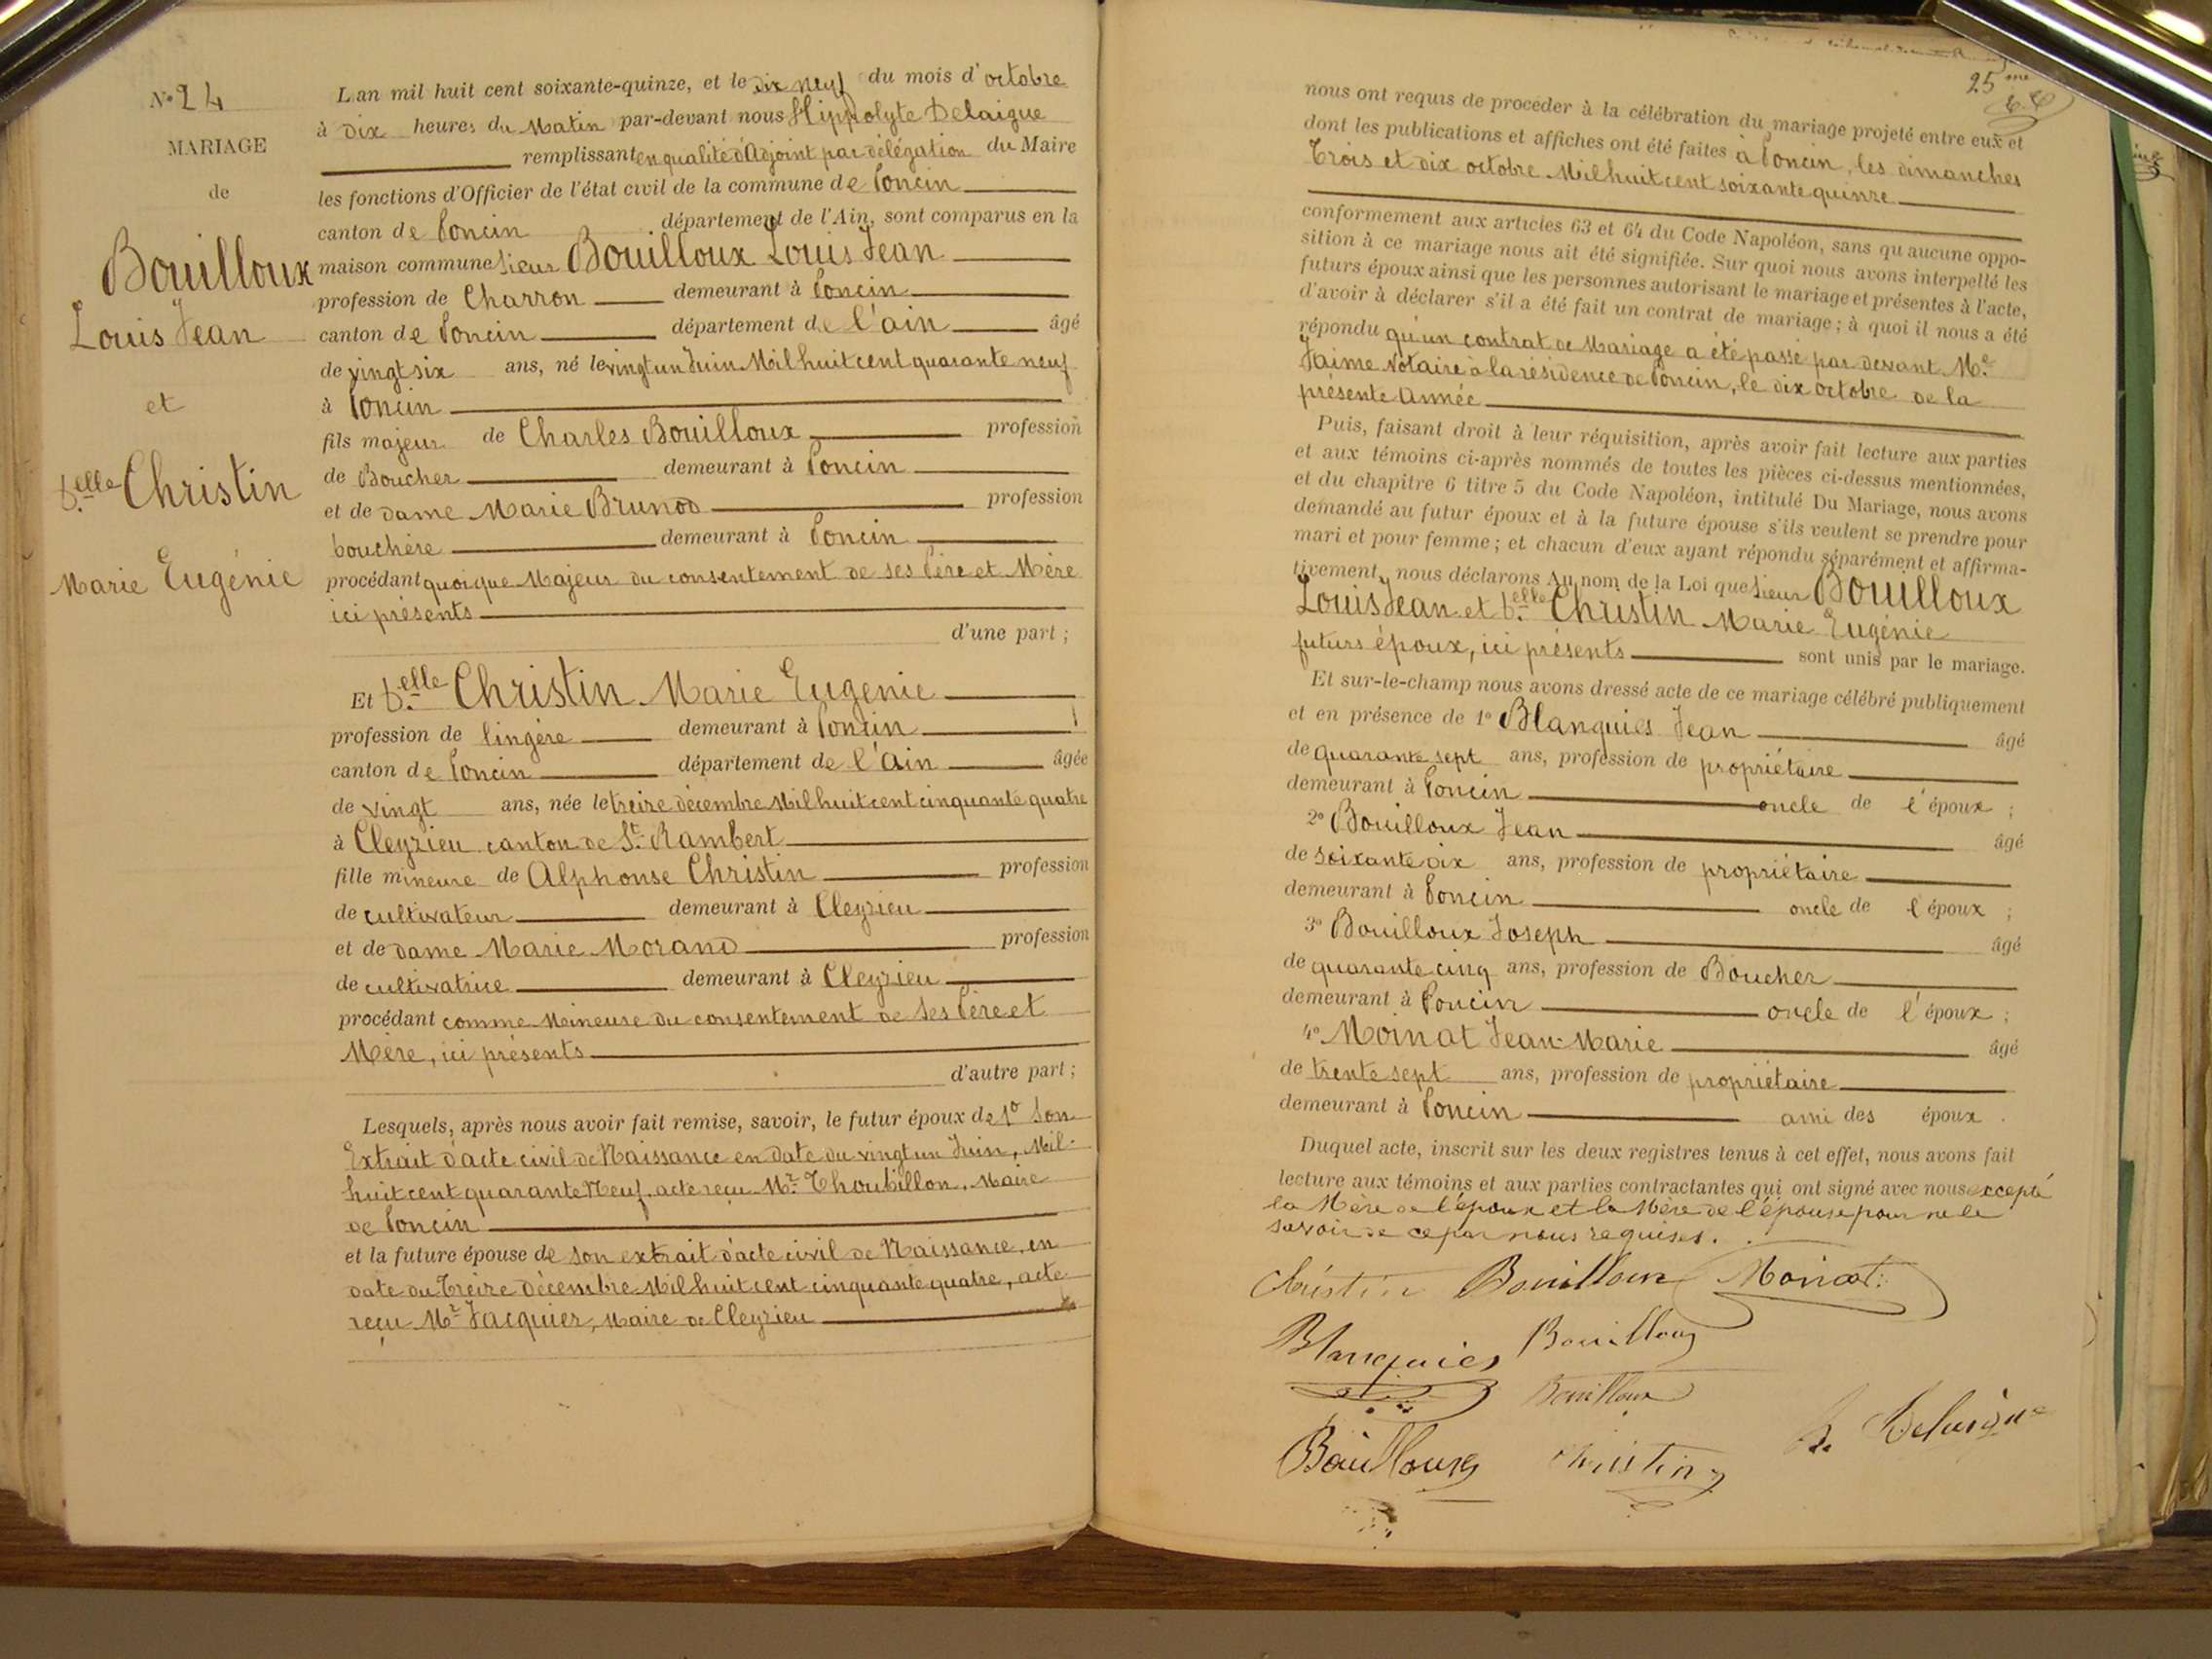 N° 24
MARIAGE
de
Bouilloux
Louis Jean
et
D.elle Christin
Marie Eugénie
L'an mil huit cent soixante-quinze, et le dix neuf du mois d'octobre
à dix heures du Matin par-devant nous Hippolyte Delaigue
remplissant en qualité d'Adjoint par délégation du Maire
les fonctions d'Officier de l'état civil de la commune de Poncin
canton de Poncin département de l'Ain, sont comparus en la
maison commune Sieur Bouilloux Louis Jean
profession de Charron demeurant à Poncin
canton de Poncin département de l'ain âgé
de vingt six ans, né le vingt un Juin Mil huit cent quarante neuf
à Poncin
fils majeur de Charles Bouilloux profession
de Boucher demeurant à Poncin
et de dame Marie Brunod profession
bouchère demeurant à Poncin
procédant quoique Majeur du consentement de ses Père et Mère
ici présents
d'une part ;
Et D.elle Christin Marie Eugenie
profession de lingère demeurant à Poncin
canton de Poncin département de l'Ain âgée
de vingt ans, née le treize décembre Mil huit cent cinquante quatre
à Cleyzieu canton de St. Rambert
fille mineure de Alphonse Christin profession
de cultivateur demeurant à Cleyzieu
et de dame Marie Morand profession
de cultivatrice demeurant à Cleyzieu
procédant comme Mineure du consentement de ses Père et
Mère, ici présents
d'autre part ;
Lesquels, après nous avoir fait remise, savoir, le futur époux de 1° Son
Extrait d'acte civil de Naissance en date du vingt un Juin, Mil-
huit cent quarante Neuf, acte reçu Mr. Thoubillon, Maire
de Poncin
et la future épouse de son extrait d'acte civil de Naissance, en
date du treize décembre Mil huit cent cinquante quatre, acte
reçu Mr Jacquier, Maire de Cleyzieu
25me
nous ont requis de procéder à la célébration du mariage projeté entre eux et
dont les publications et affiches ont été faites à Poncin, les dimanches
Trois et dix octobre Mil huit cent soixante quinze
conformement aux articles 63 et 64 du Code Napoléon, sans qu'aucune oppo-
sition à ce mariage nous ait été signifiée. Sur quoi nous avons interpellé les
futurs époux ainsi que les personnes autorisant le mariage et présentes à l'acte,
d'avoir à déclarer s'il a été fait un contrat de mariage ; à quoi il nous a été
répondu qu'un contrat de Mariage a été passé par devant Me.
Jaime Notaire à la résidence de Poncin, le dix octobre de la
présente Année
Puis, faisant droit à leur réquisition, après avoir fait lecture aux parties
et aux témoins ci-après nommés de toutes les pièces ci-dessus mentionnées,
et du chapitre 6 titre 5 du Code Napoléon, intitulé Du Mariage, nous avons
demandé au futur époux et à la future épouse s'ils veulent se prendre pour
mari et pour femme ; et chacun d'eux ayant répondu séparément et affirma-
tivement, nous déclarons Au nom de la Loi que Sieur Bouilloux
Louis Jean et D.elle Christin Marie Eugénie
futurs époux, ici présents sont unis par le mariage.
Et sur-le-champ nous avons dressé acte de ce mariage célébré publiquement
et en présence de 1° Blanquies Jean âgé
de quarante sept ans, profession de propriétaire
demeurant à Poncin oncle de l'époux ;
2° Bouilloux Jean âgé
de soixante dix ans, profession de propriétaire
demeurant à Poncin oncle de l'époux ;
3° Bouilloux Joseph âgé
de quarante cinq ans, profession de Boucher
demeurant à Poncin oncle de l'époux ;
4° Moinat Jean-Marie âgé
de trente sept ans, profession de propriétaire
demeurant à Poncin ami des époux.
Duquel acte, inscrit sur les deux registres tenus à cet effet, nous avons fait
lecture aux témoins et aux parties contractantes qui ont signé avec nous excepté
la Mère de l'époux et la Mère de l'épouse pour ne le
savoir de ce par nous requises.
Christin Bouilloux Moinat
Blanquies Bouilloux
Bouilloux
Bouilloux Christin H. Delaigue